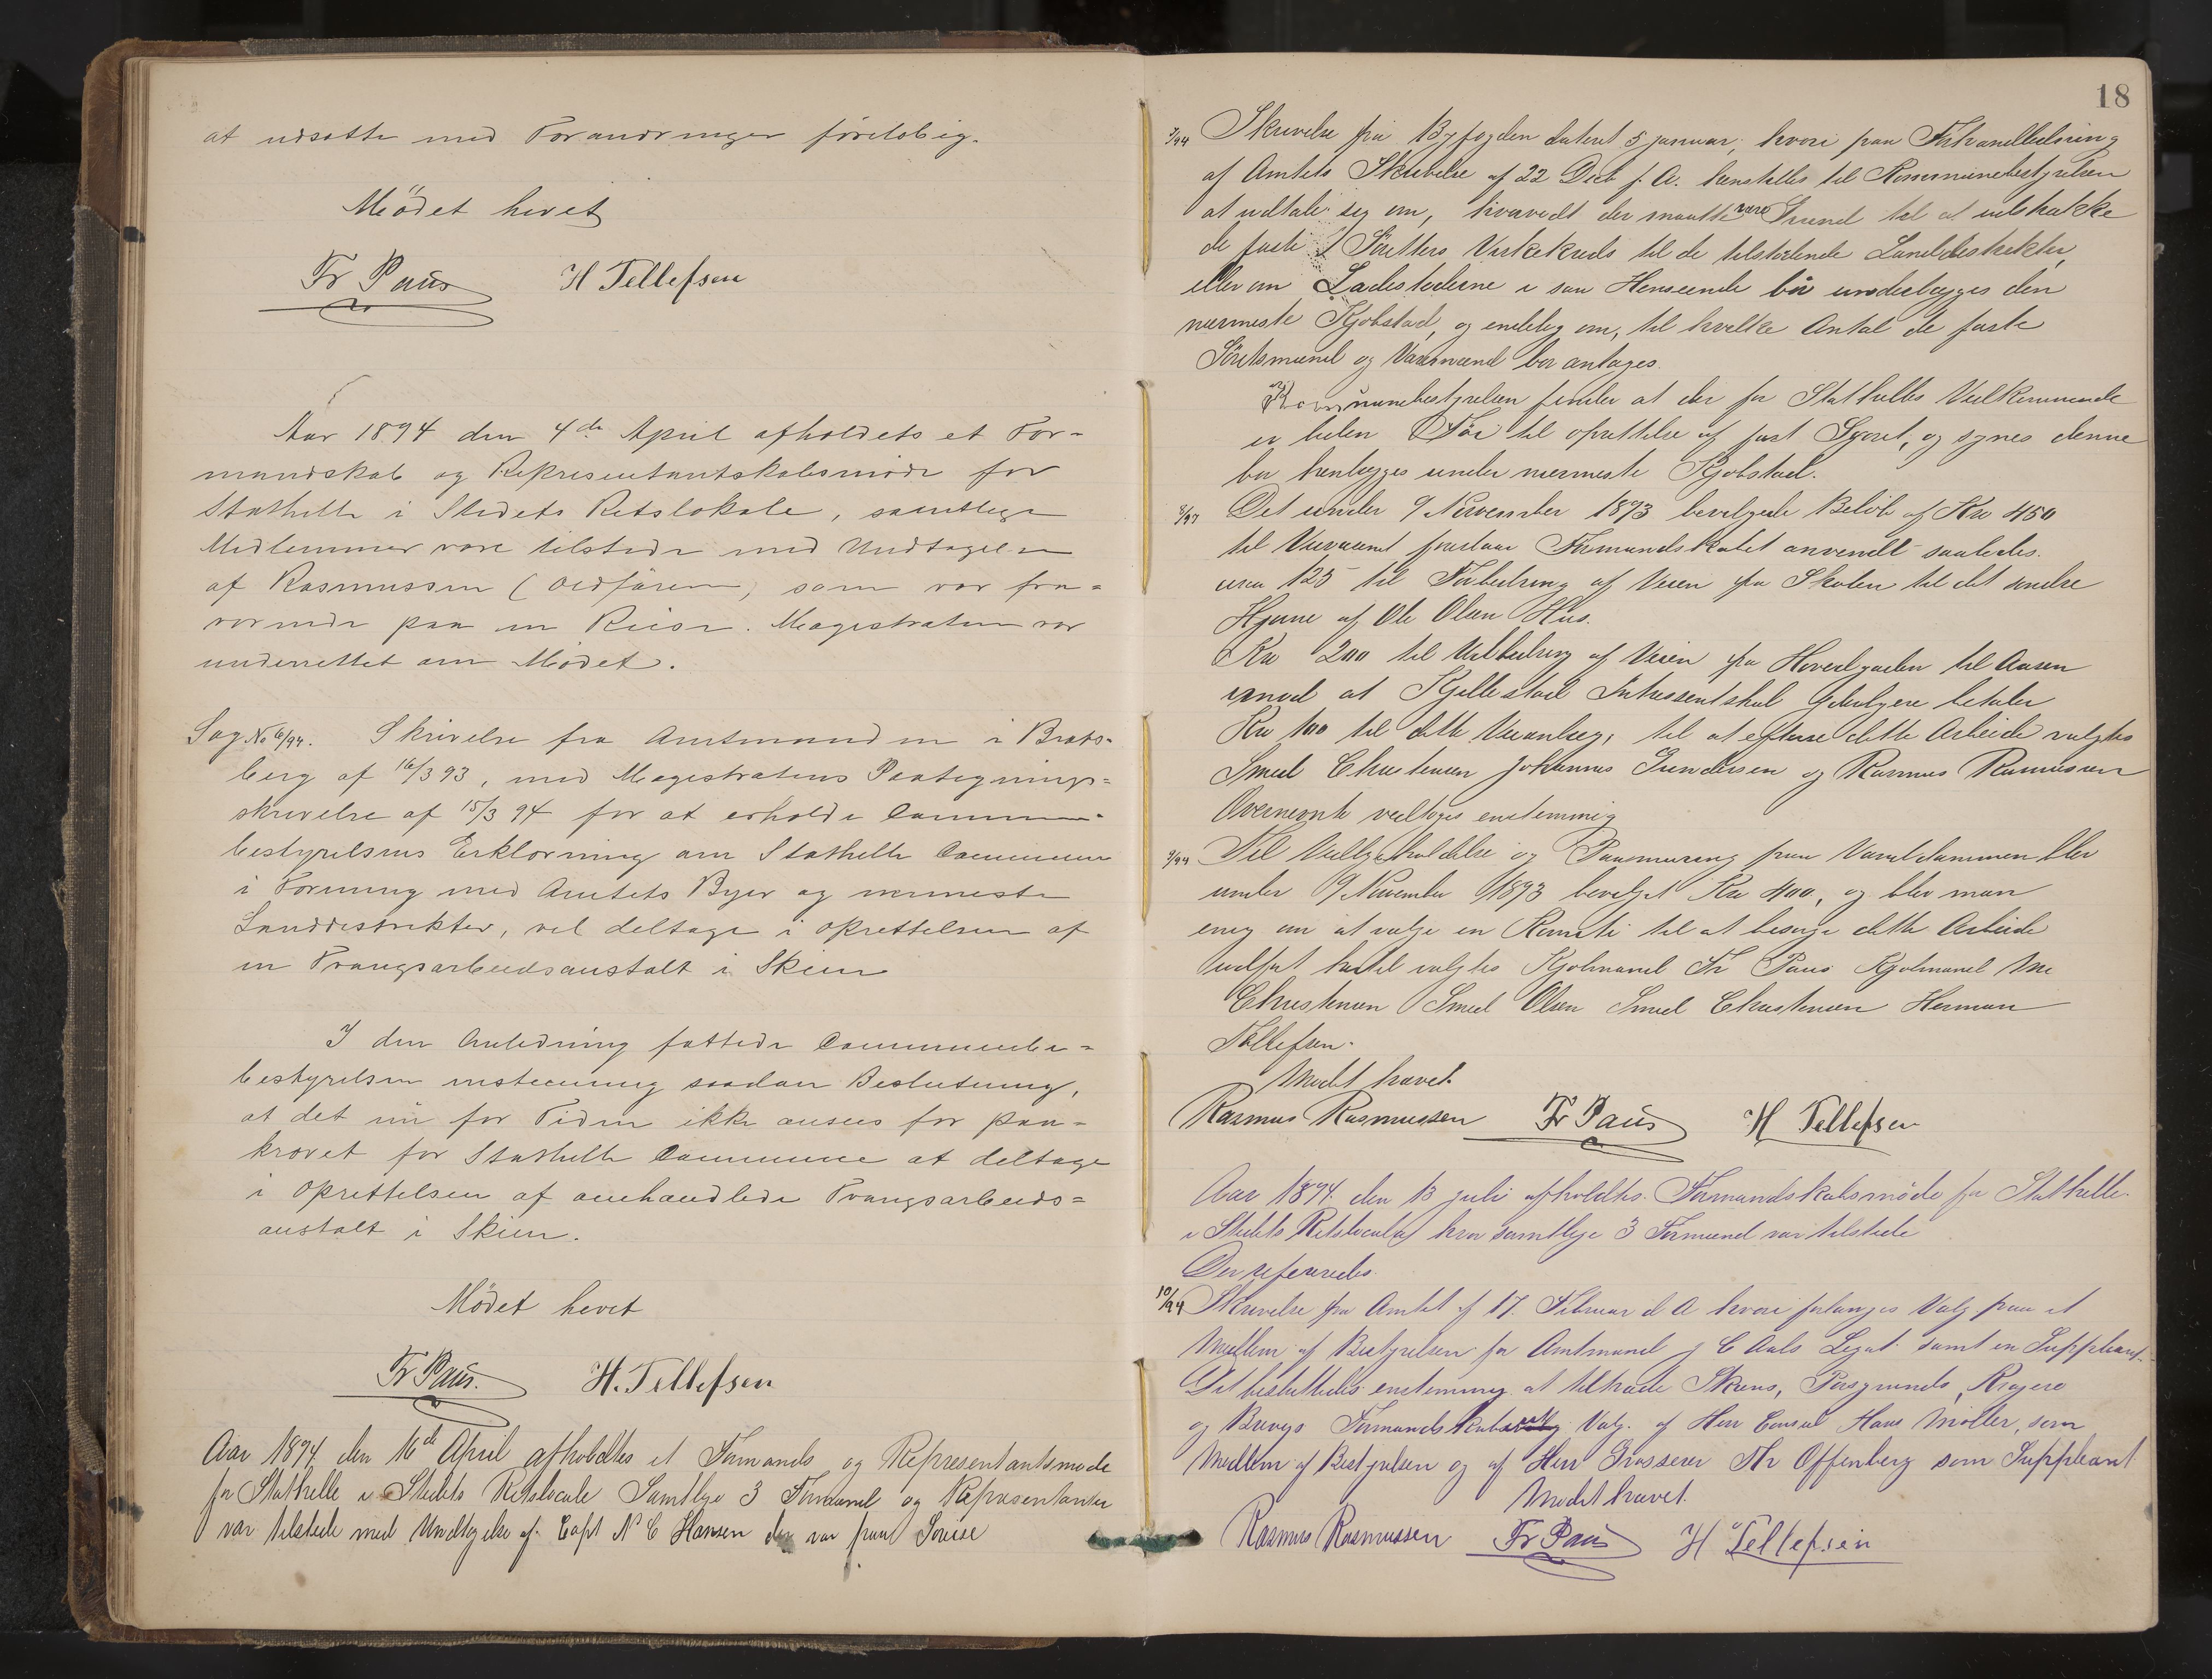 at udsætte med Forandringer foreløbig.
Mödet hevet
Fr Paus H Tellefsen
Aar 1894 den 4de April afholdets et For-
mandskab og Representantskabsmöde for
Stathelle i Stedets Retslokale, samtlige
Medlemmer vare tilstede med Undtagelse
af Rasmussen (Ordfören) som var fra-
værende paa en Reise. Magistraten var
underrettet om Mödet.
Sag No 6/94. Skrivelse fra Amtmanden i Brats-
berg af 16/3 93, med Magistratens Paategnings-
skrivelse af 15/3 94 for at erholde Commune-
bestyrelsens Erklæring om Stathelle Commune
i Forening med Amtets Byer og nærmeste
Landdistrikter, vil deltage i Oprettelsen af
en Tvangsarbeidsanstalt i Skien
I den Anledning fattede Communebe-
bestyrelsen enstemmig saadan Beslutning,
at det nu for Tiden ikke ansees for paa-
krævet for Stathelle Commune at deltage
i Oprettelsen af omhandlede Tvangsarbeids-
anstalt i Skien.
Mödet hevet
Fr Paus. H. Tellefsen
Aar 1894 den 16de April afholdtes et Formands og Representantsmøde
for Stathelle i Stedets Retslocale Samtlige 3 Formænd og Representanter
var tilstede med Undtagelse af Capt N C Hansen der var paa Reise
18
7/94 Skrivelse fra Byfogden dateret 5 januar, hvori paa Foranledning
af Amtets Skrivelse af 22 Decb f. A. henstilles til Kommunebestyrelsen
at udtale sig om, hvorvidt der maatte være Grund til at udstrække
de faste Skjønsretters Virkekreds til de tilstødende Landdistrikter,
eller om Ladestederne i saa Henseende bör underlægges den
nærmeste Kjøbstad, og endelig om, til hvilke Antal de faste
mænd og Varamænd bør antages.
Kommunebestyrelsen finder at der for Stathelles Vedkommende
er liden til oprettelse af fast , og synes denne
bør henlægges under nærmeste Kjøbstad.
8/94 Det under 9 November 1893 bevilgede Beløb af Kr 450
til Veivæsenet foreslaar Formandskabet anvendt saaledes.
125 til Forbedring af Veien fra Skolen til det søndre
Hjørne af Ole Olsen Hus.
Kr 200 til Udbedring af Veien fra Hovedgaden til Aasen
imod at Kjellestad Intressentskab yderligere betaler
Kr 100 til dette Veianlæg, til at efterse dette Arbeide valgtes
Smed Christensen Johannes Gundersen og Rasmus Rasmussen
Overnevnte vedtoges enstemmig
9/94 Til Vedligeholdelse og Paamuring paa Vanddammen blev
under 9 November 1893 bevilget Kr 400, og blev man
enig om at vælge en Komite til at besørge dette Arbeide
udført hertil valgtes Kjøbmand Fr Paus Kjøbmand
Christensen Smed Olsen Smed Christensen Herman
Tellefsen.
Mødet hævet.
Rasmus Rasmussen Fr Paus H Tellefsen
Aar 1894 den 13 juli afholdtes Formandskabsmöde for Stathelle
i Stedets Retslocale hvor samtlige 3 Formænd var tilstede
Der refereredes.
10/94 Skrivelse fra Amtet af 17. Februar d A hvori forlanges Valg paa et
Medlem af Bestyrelsen for Amtmand J C Aals Legat samt en Suppleant.
Det besluttedes enstemmig at tiltræde Skiens, Porsgrunds, Kragerø
og Brevigs Formandskabs Valg af Herr Consul Hans Møller, som
Medlem af Bestyrelsen og af Herr Grosserer Th Offenberg som Suppleant
Mødet hævet.
Rasmus Rasmussen Fr Paus H Tellefsen